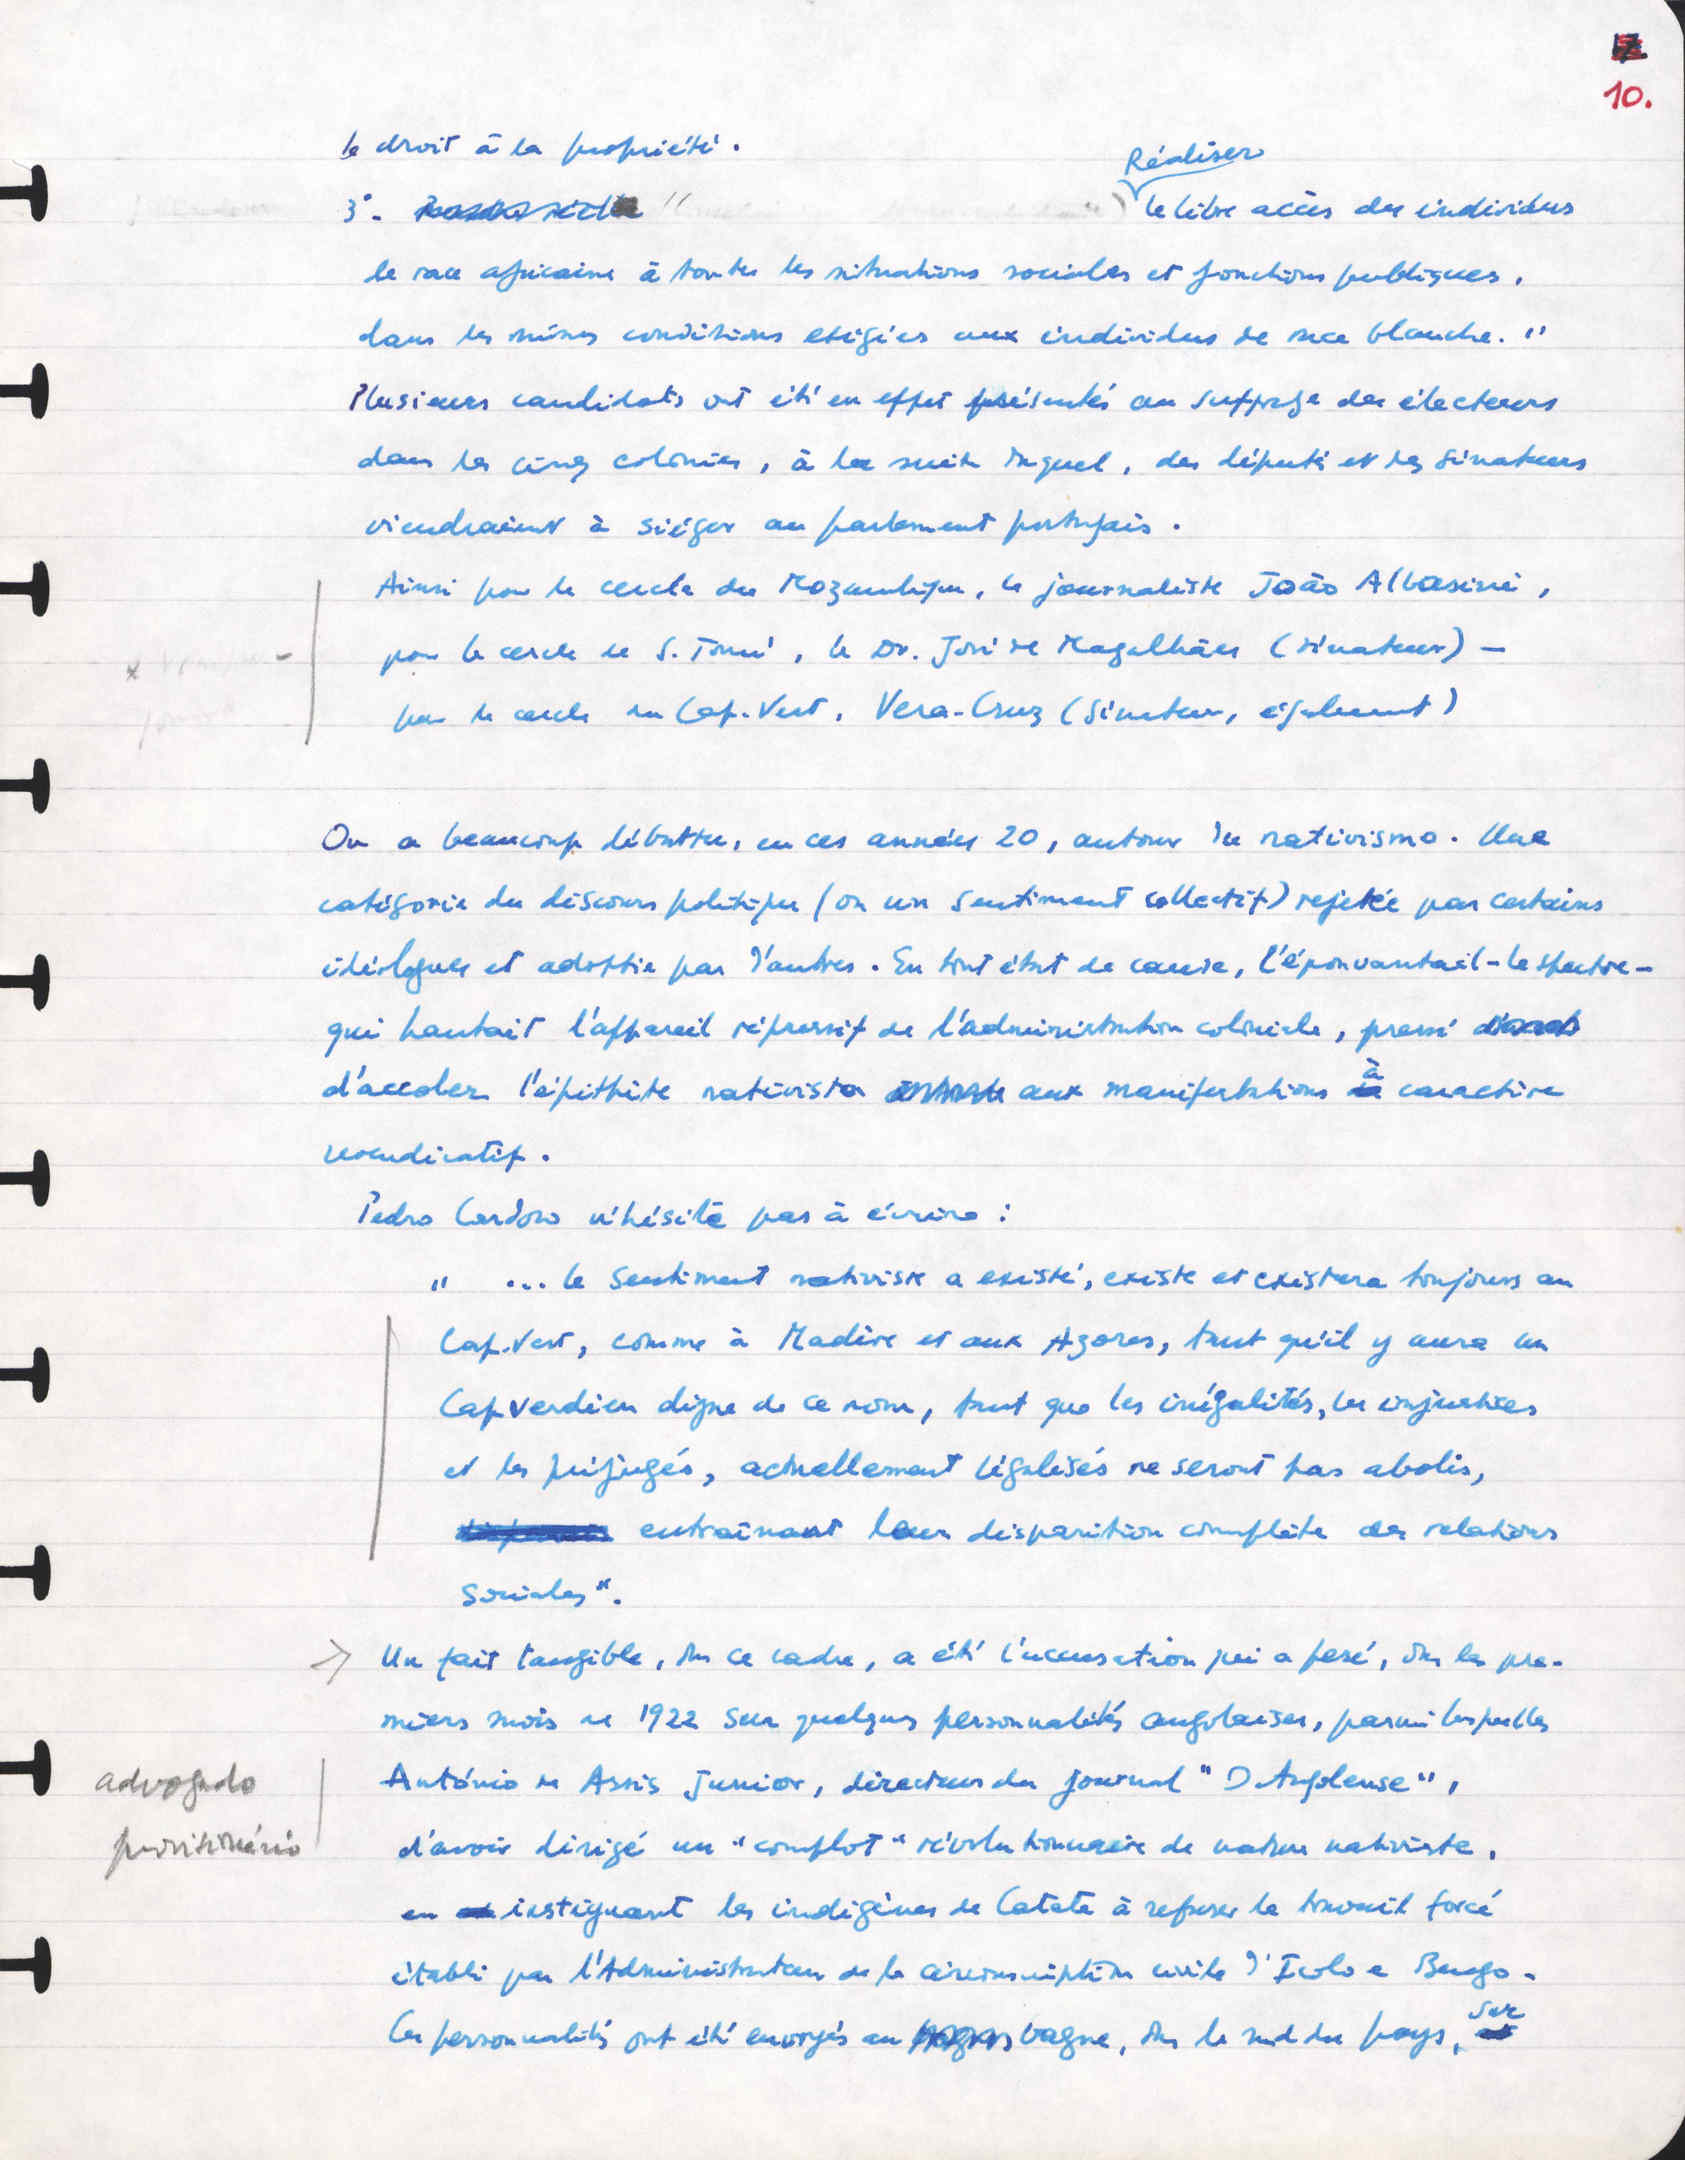 10.
le droit à la propriété.
Réaliser
3°. " le libre accès des individus
de race africaine à toutes les situations sociales et fonctions publiques,
dans les mêmes conditions exigées aux individus de race blanche. "
Plusieurs candidats ont été en effet présentés au suffrage des électeurs
dans les cinq colonies, à la suite duquel, des députés et des sénateurs
viendraient à siéger au parlement portugais.
Ainsi pour le cercle du Mozambique, le journaliste João Albasini,
pour le cercle de S. Tomé, le Dr. José de Magalhães (sénateur) -
pour le cercle du Cap-Vert, Vera-Cruz (Sénateur, également)
On a beaucoup débattu, en ces années 20, autour du nativismo. Une
catégorie du discours politique (ou un sentiment collectif) rejetée par certains
idéologues et adoptée par d'autres. En tout état de cause, l'épouvantail - le spectre -
qui hantait l'appareil répressif de l'administration coloniale, pressé
d'accoler l'épithète nativista aux manifestations à caractère
revendicatif.
Pedro Cardoso n'hésite pas à écrire :
" ... le sentiment nativiste a existé, existe et existera toujours au
Cap-Vert, comme à Madère et aux Açores, tant qu'il y aura un
Capverdien digne de ce nom, tant que les inégalités, les injustices
et les préjugés, actuellement légalisés ne seront pas abolis,
entraînant leur disparition complète des relations
sociales ".
→ Un fait tangible, dns ce cadre, a été l'accusation qui a pesé, dns les pre-
miers mois de 1922 sur quelques personnalités angolaises, parmi lesquelles
António de Assis Junior, directeur du journal " O Angolense ",
advogado
d'avoir dirigé un " complot " révolutionnaire de nature nativiste,
provisionário
en instiguant les indigènes de Catete à refuser le travail forcé
établi par l'Administrateur de la circonscription civile d'Icolo e Bengo.
Ces personnalités ont été envoyés au bagne, dns le sud du pays, sur